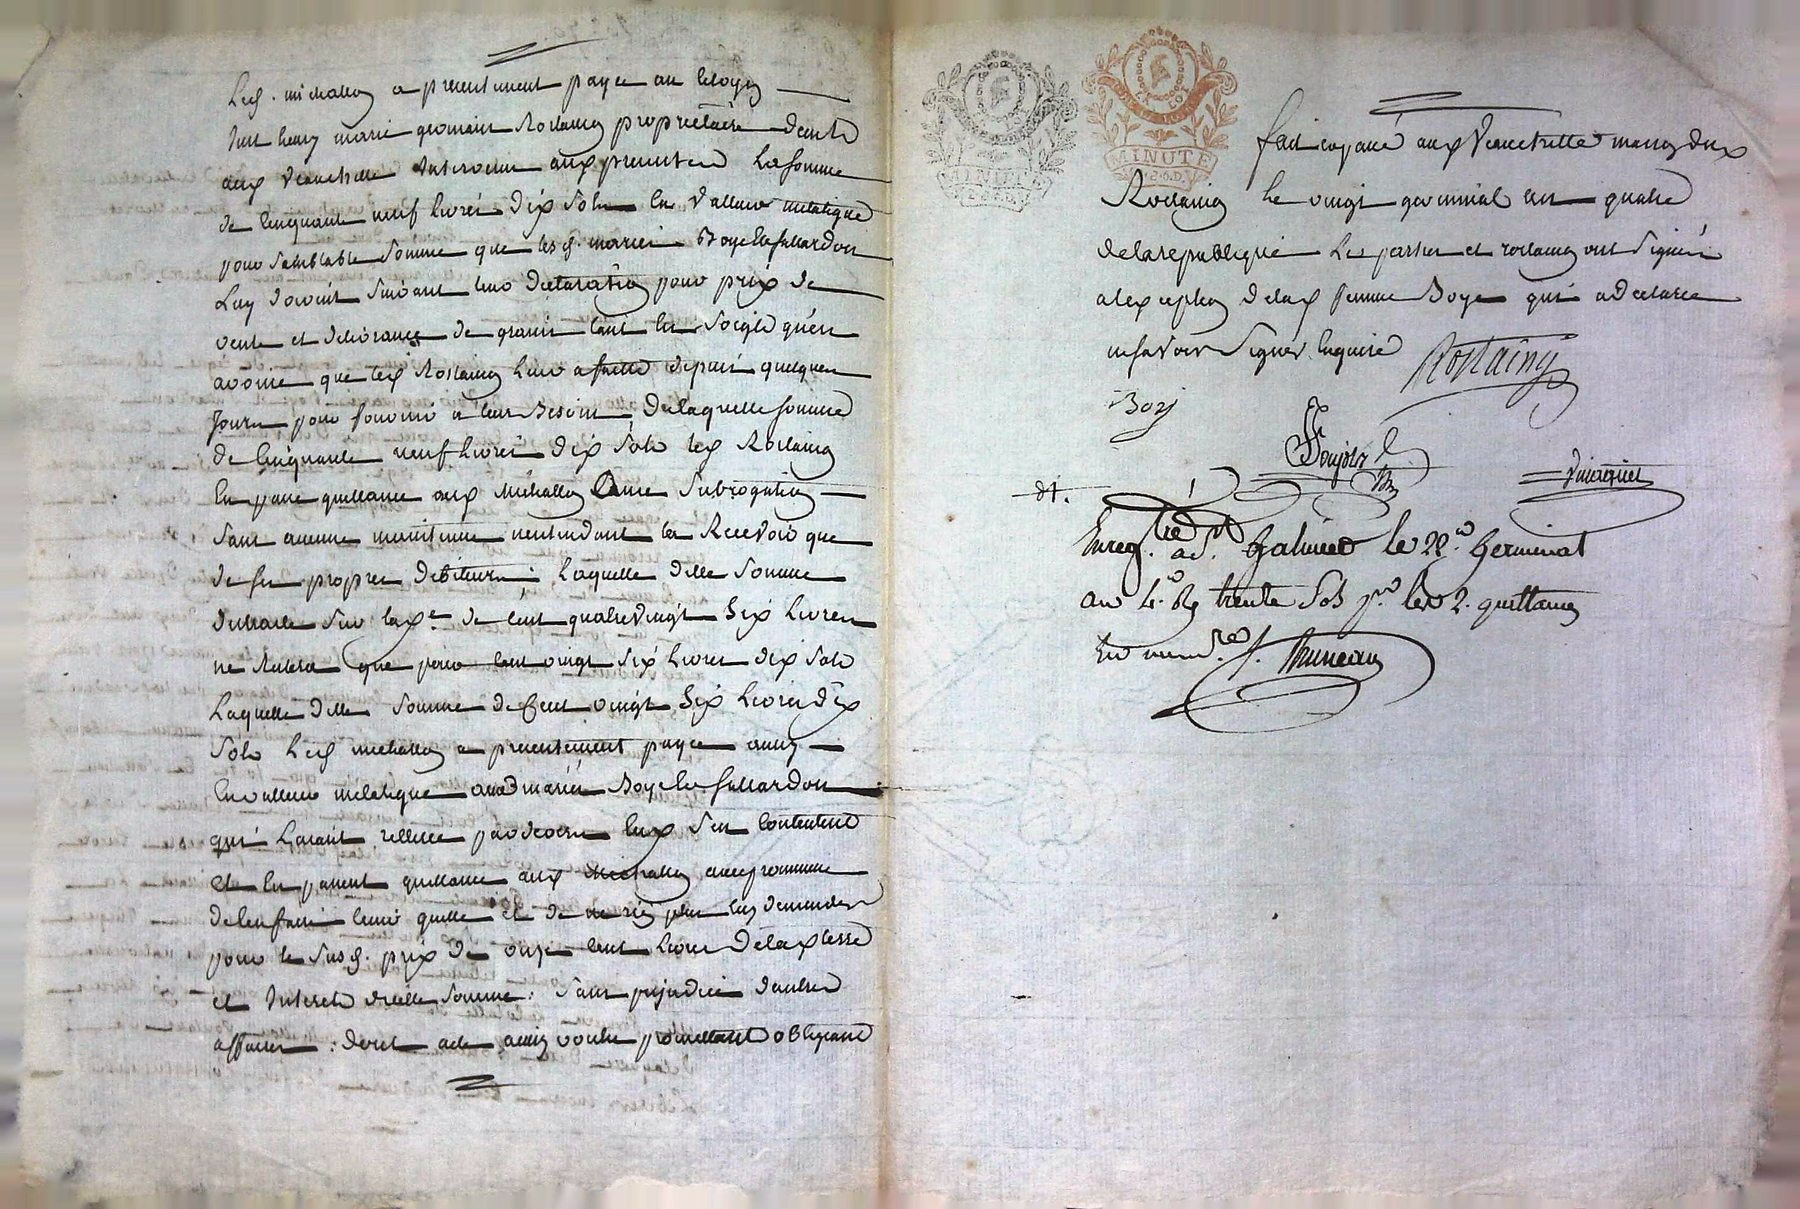 Led. michallon a presentement payé au Citoyen
Just henry marie germain Rostaing proprietaire demt.
aux Veauchette intervenu aux presentes La somme
de Cinquante neuf Livres dix Sols en Valleur metalique
pour Semblable Somme que lesd. mariés Boye et fullardon
Luy devoient Suivant leur declaration pour prix de
vente et delivrance de grains tant en Soigle qu'en
avoine que led Rostaing Leur a faitte depuis quelques
Jours pour fournir a leurs Besoins, De laquelle somme
de Cinquante neuf Livres dix Sols led Rostaing
En passe quittance aux Michallon avec Subrogation
Sans aucune maintenue n'entendant la Recevoir que
de ses propres debiteurs : Laquelle ditte Somme
distraite Sur la de Cent quatre vingt Six Livres
ne Restera que pour Cent vingt Six Livres dix Sols
Laquelle ditte Somme de Cent vingt Six Livres dix
Sols Led michallon a presentement payée aussy
En valleur metalique auxd mariés Boye et fullardon
qui Layant retirée pardevers Eux S'en Contentent
et En passent quittance aud Michallon avec promesse
de l'en faire tenir quitte et de ne rien plus luy demander
pour le Susd. prix de onze Cent Livres de lad terre
et Interets d'icelle Somme. Sans prejudice d'autres
affaires : dont acte, ainsy voulu promettant obligeant
MINUTE
MINUTE
fait et passé aux Veauchette maison dud
Rostaing Le vingt germinal an quatre
de la republique Les parties et rostaing ont Signés
a l'exception de lad femme Boye qui a declaré
ne savoir Signer Enquise Rostaing
Boy
Enreg.tré à St. Galmier le 22.e Germinal
an 4.e Rç trente Sols pr. les 2. quittances
En num.re